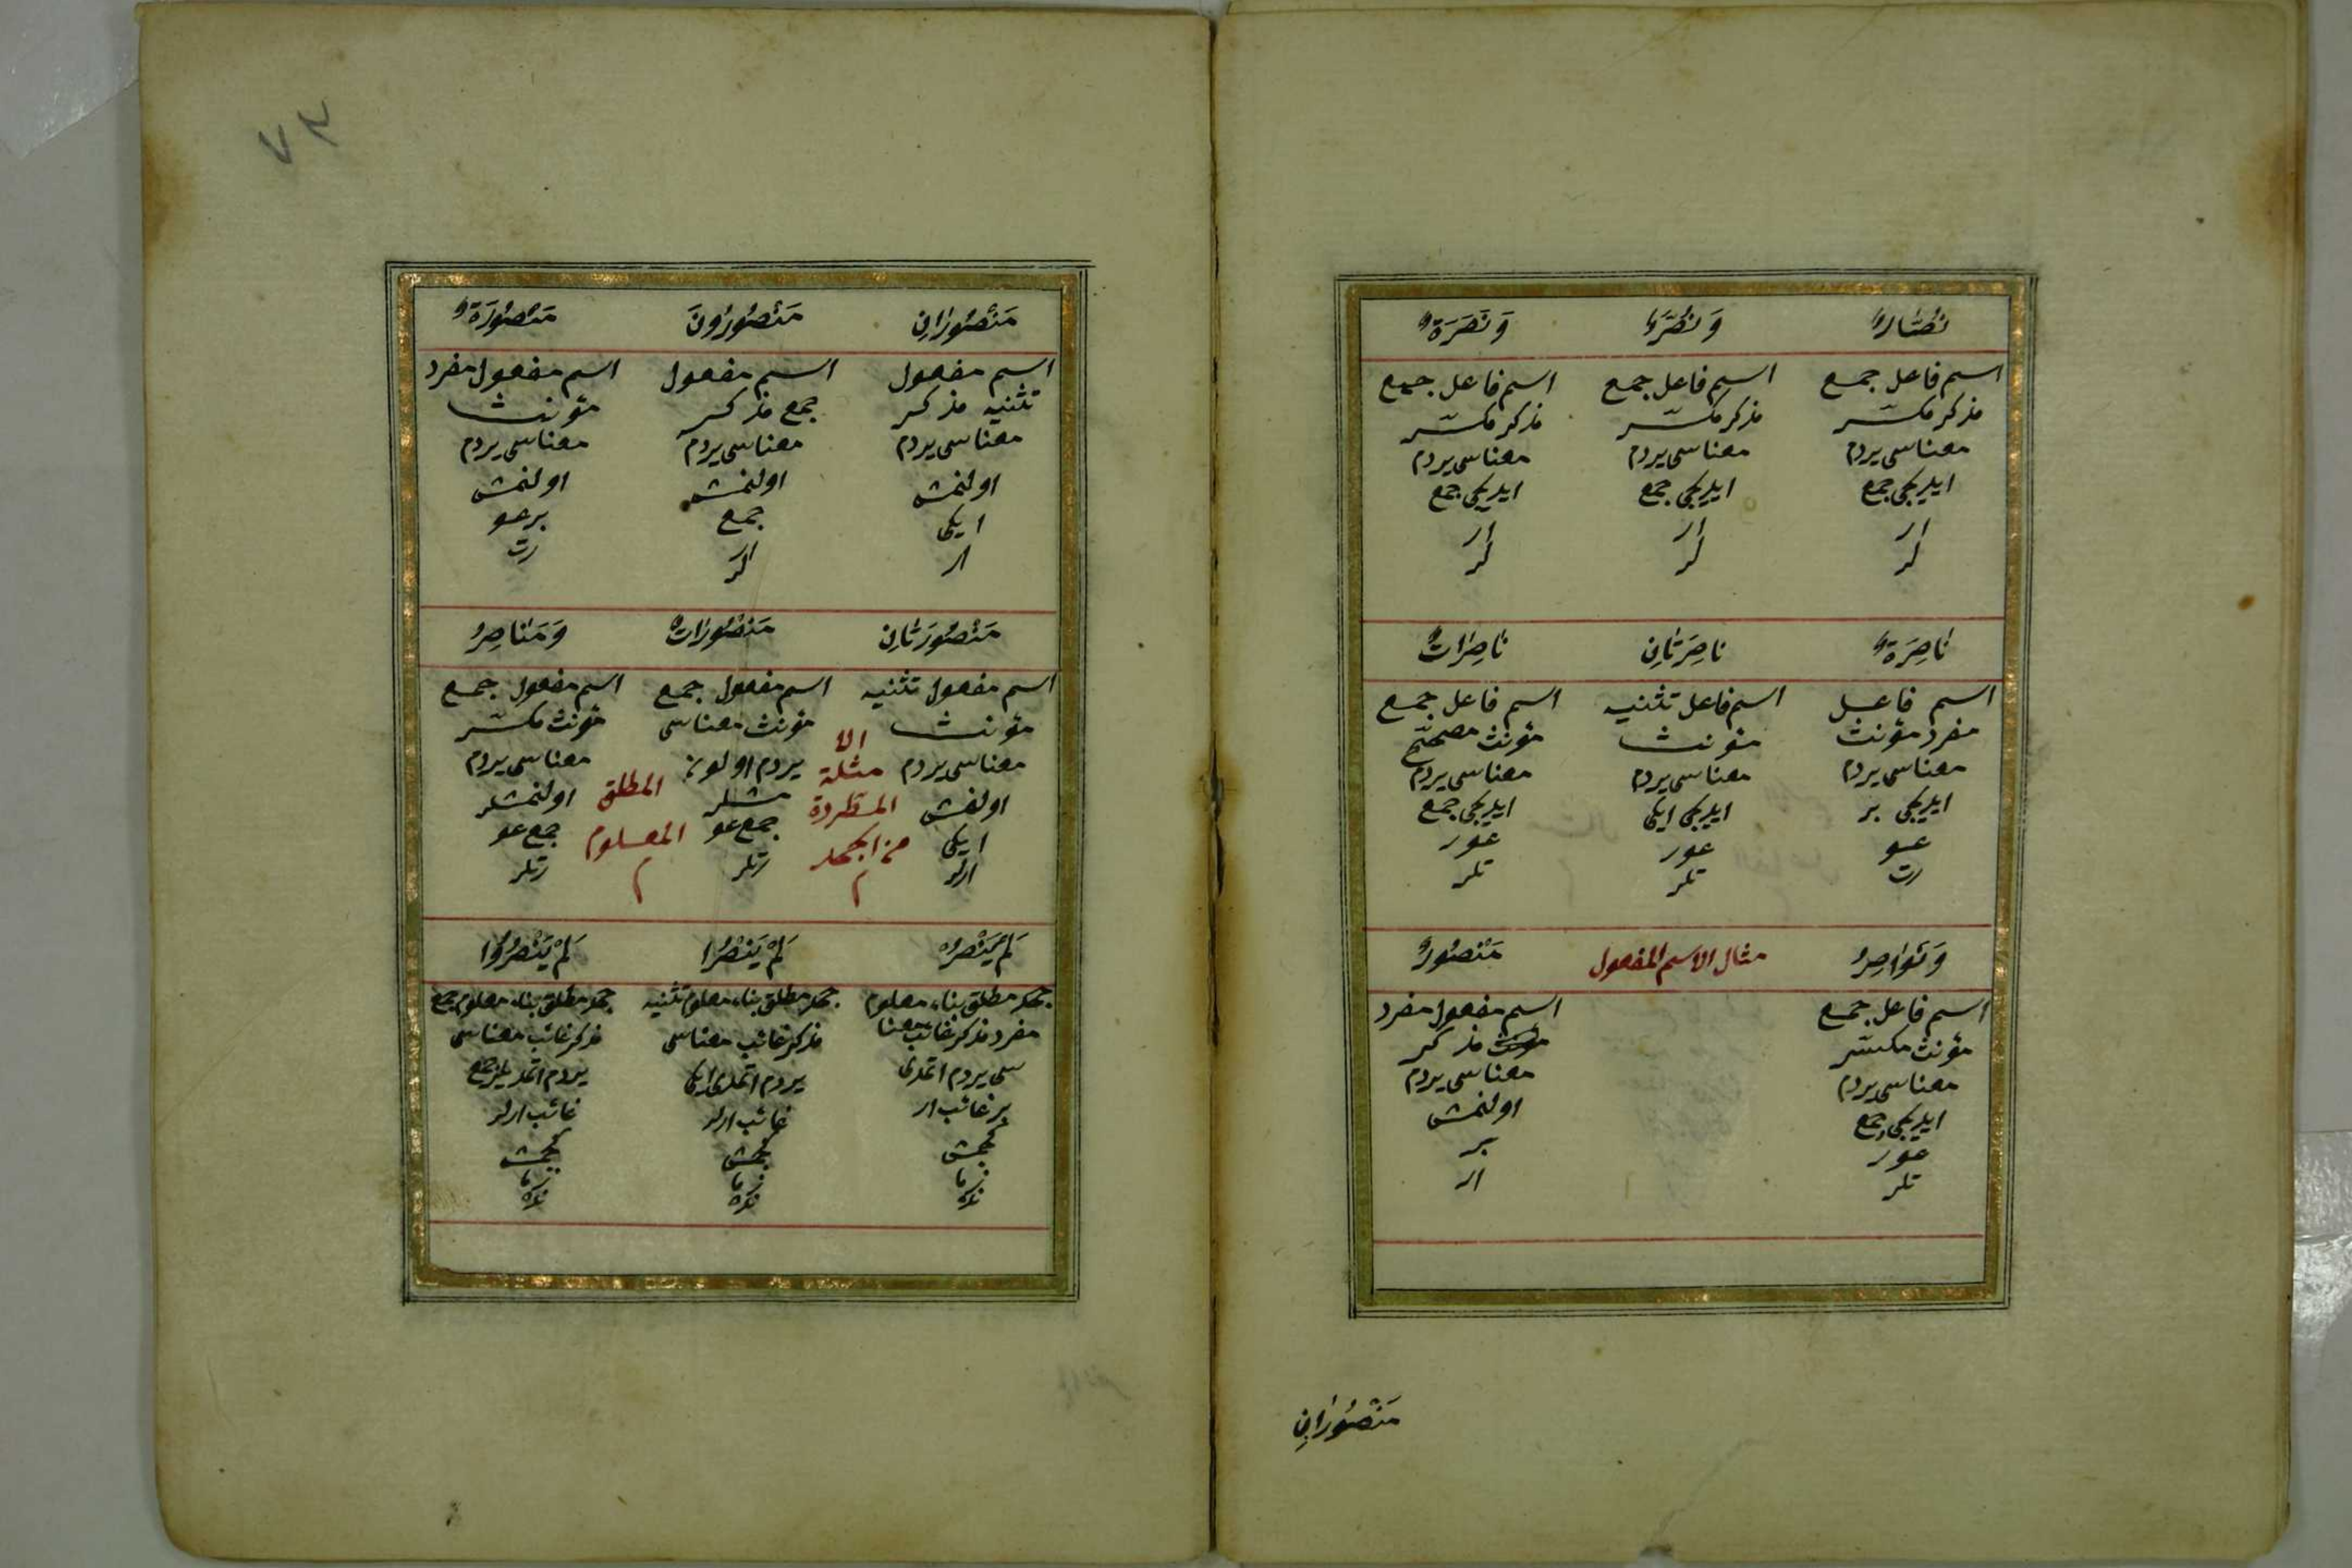 نُصَّارٌ
وَنُصَّرٌ
وَنَصَرَةٌ
اسم فاعل جمع
مذكر مكسّر
معناسى يردم
ايديجى جمع
ار
لر
اسم فاعل جمع
مذكر مكسّر
معناسى يردم
ايديجى جمع
ار
لر
اسم فاعل جمع
مذكر مكسّر
معناسى يردم
ايديجى جمع
ار
لر
نَاصِرَةٌ
نَاصِرَتَانِ
نَاصِرَاتٌ
اسم فاعل
مفرد مؤنث
معناسى يردم
ايديجى بر
عو
رت
اسم فاعل تثنيه
مؤنث
معناسى يردم
ايديجى ايكى
عور
تلر
اسم فاعل جمع
مؤنث مصحّح
معناسى يردم
ايديجى جمع
عور
تلر
وَنَوَاصِرُ
مثال الاسم المفعول
مَنْصُورٌ
اسم فاعل جمع
مؤنث مكسّر
معناسى يردم
ايديجى جمع
عور
تلر
اسم مفعول مفرد
مذكر
معناسى يردم
اولنمش
بر
ار
مَنْصُورَانِ
٧٣
مَنْصُورَانِ
مَنْصُورُونَ
مَنْصُورَةٌ
اسم مفعول
تثنيه مذكر
معناسى يردم
اولنمش
ايكى
ار
اسم مفعول
جمع مذكر
معناسى يردم
اولنمش
جمع
ارلر
اسم مفعول مفرد
مؤنث
معناسى يردم
اولنمش
بر عو
رت
مَنْصُورَتَانِ
مَنْصُورَاتٌ
وَمَنَاصِرُ
اسم مفعول تثنيه
مؤنث
معناسى يردم
اولنمش
ايكى
ارلر
الا
مثلة
المطردة
من الجحد
م
اسم مفعول جمع
مؤنث معناسى
يردم
مشلر
جمع عو
رتلر
المطلق
المعلوم
م
اسم مفعول جمع
مؤنث مكسّر
معناسى يردم
اولنمشلر
جمع عو
رتلر
لَمْ يَنْصُرْ
لَمْ يَنْصُرَا
لَمْ يَنْصُرُوا
جحد مطلق بناء معلوم
مفرد مذكر غائب معنا
سى يردم اتمدى
بر غائب ار
كچمش
زما
نده
جحد مطلق بناء معلوم تثنيه
مذكر غائب معناسى
يردم اتمدى ايكى
غائب ارلر
كچمش
زما
نده
جحد مطلق بناء معلوم جمع
مذكر غائب معناسى
يردم اتمديلر جمع
غائب ارلر
كچمش
زما
نده